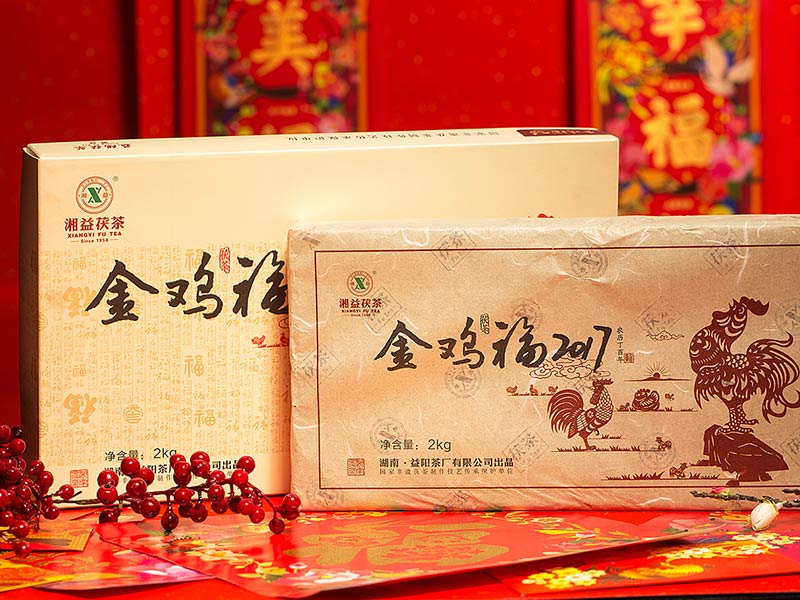 美
幸
福
湘益茯茶
XIANGYI FU TEA
Since 1958
金鸡福
净含量：2kg
湖南·益阳茶厂有限公司出品
湘益茯茶
XIANGYI FU TEA
Since 1958
金鸡福2017
茯茶
农历丁酉年
净含量：2kg
湖南·益阳茶厂有限公司出品
国家非遗茯茶制作技艺传承保护单位